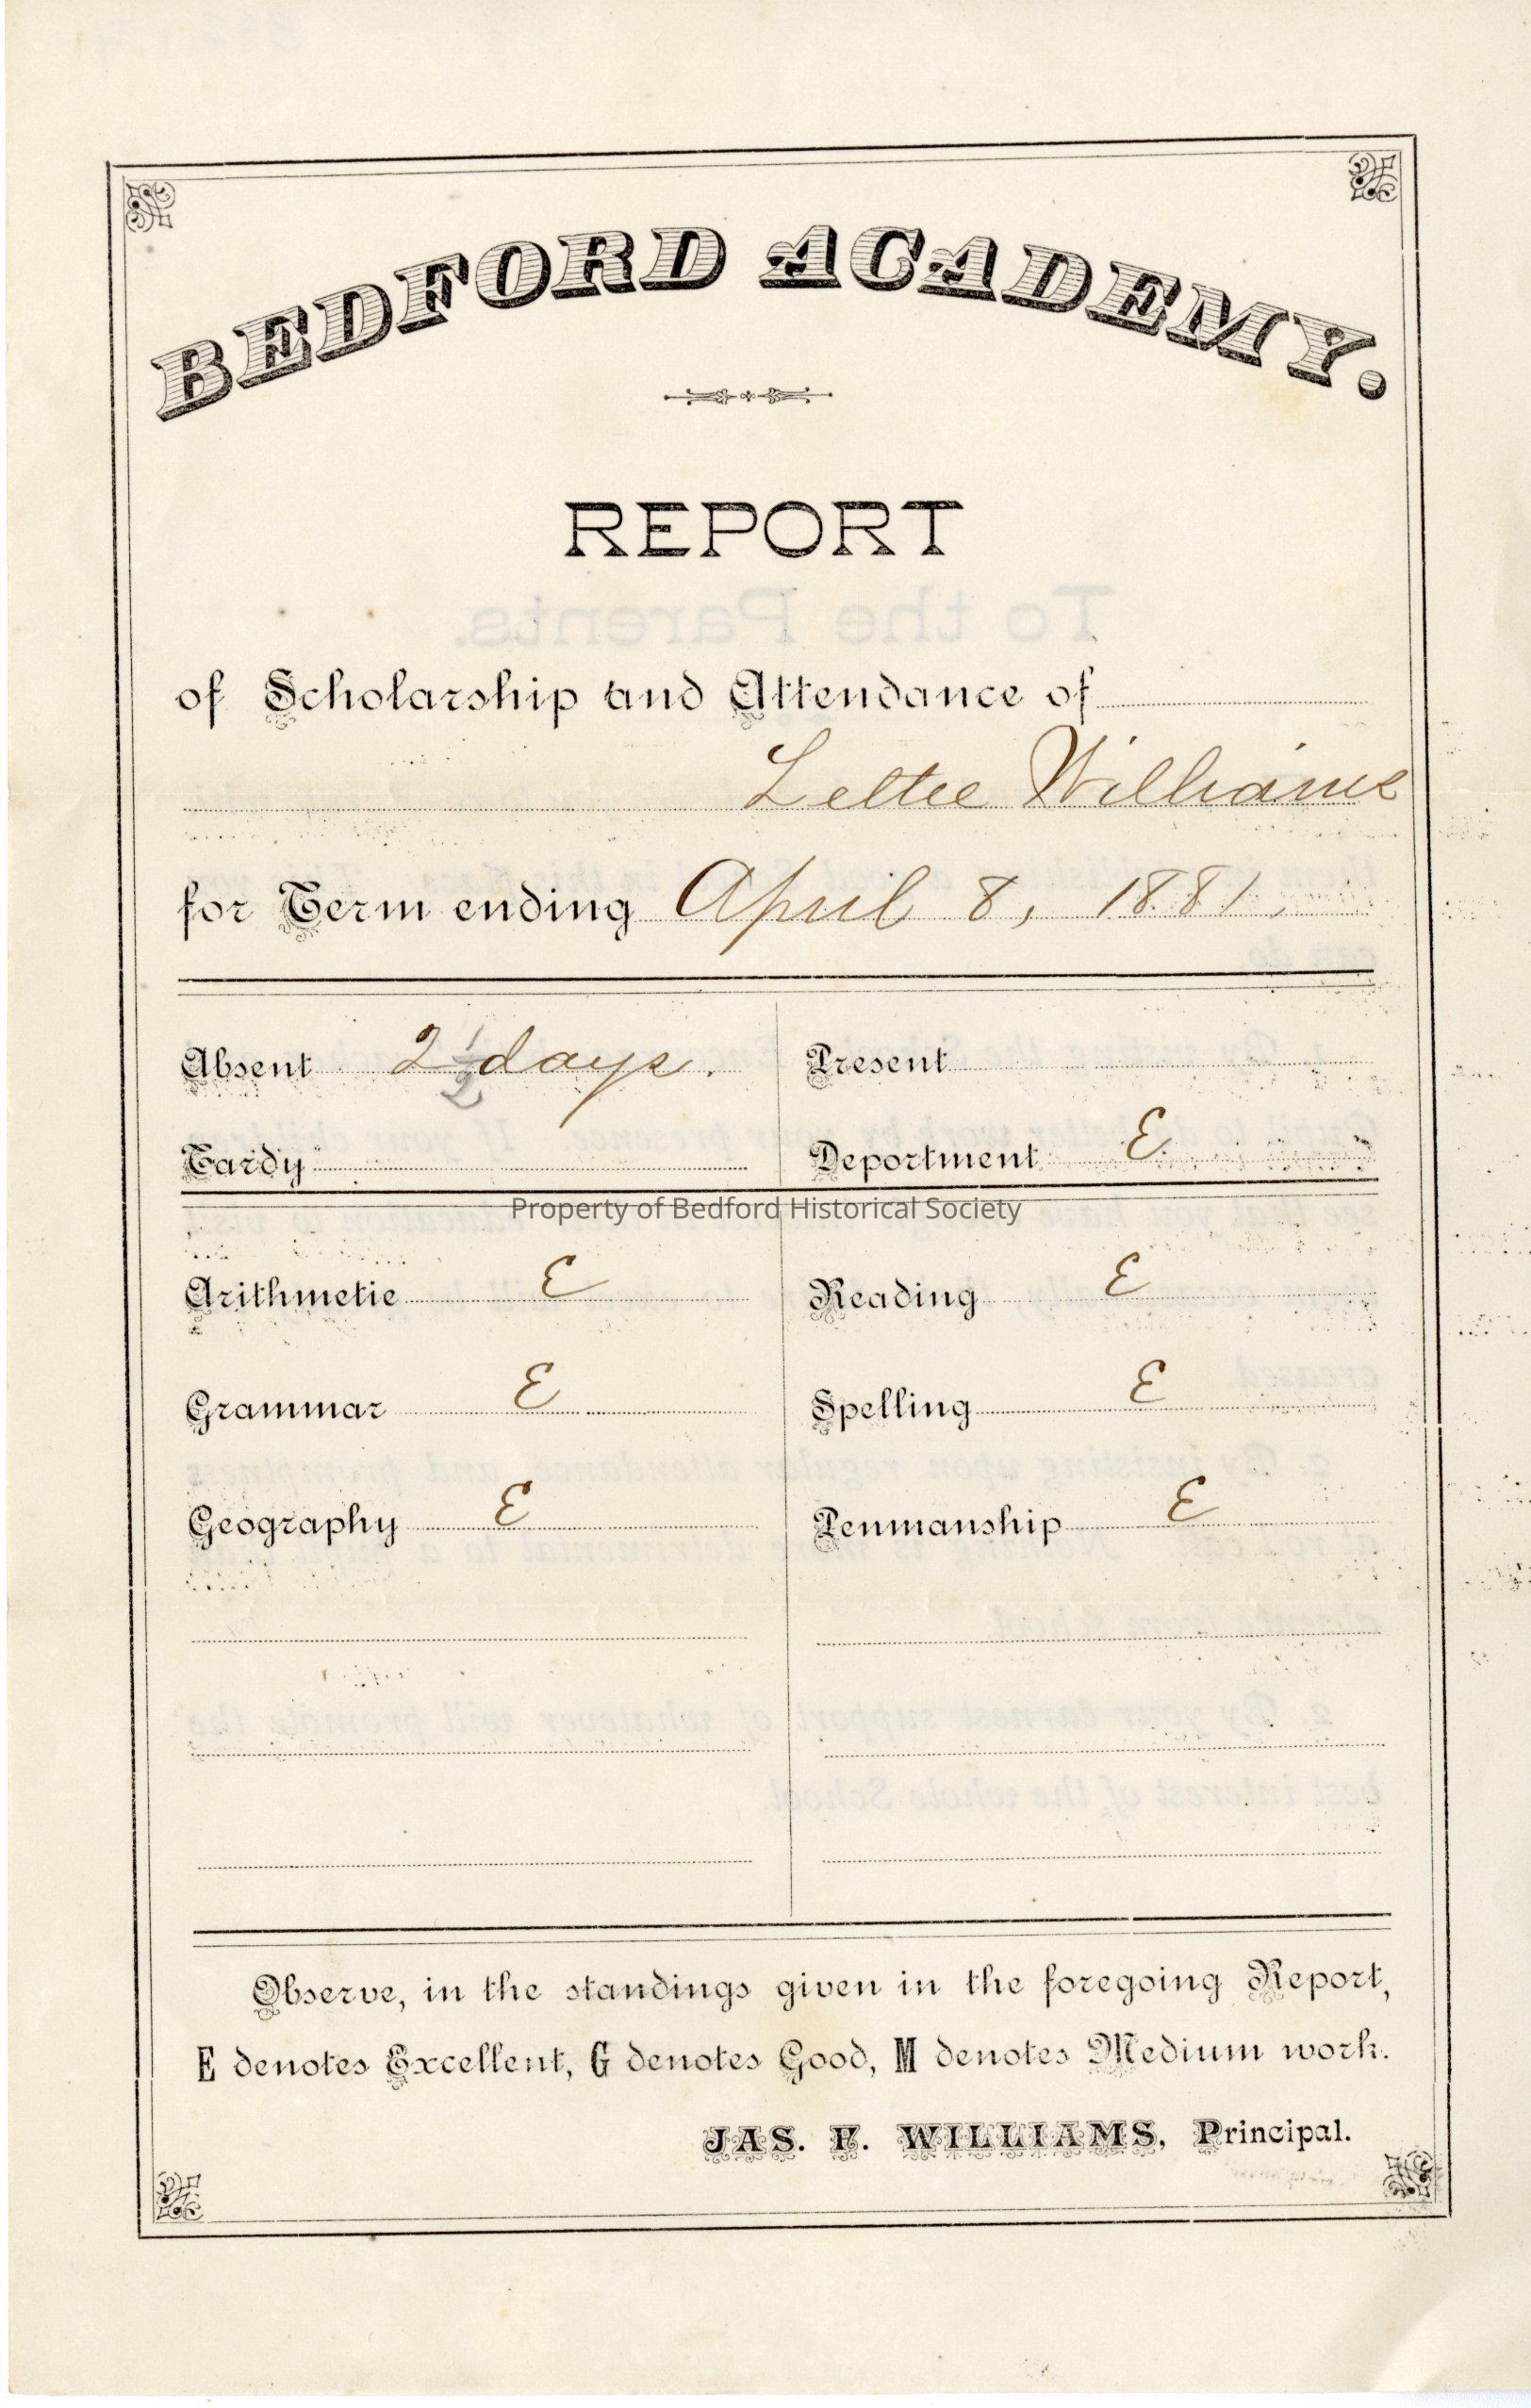 BEDFORD ACADEMY.
REPORT
of Scholarship and Attendance of
Lettie Williams
for Term ending April 8, 1881.
Absent 2 1/2 days. Present
Tardy Deportment E.
Property of Bedford Historical Society
Arithmetic E Reading E
Grammar E Spelling E
Geography E Penmanship E
Observe, in the standings given in the foregoing Report,
E denotes Excellent, G denotes Good, M denotes Medium work.
JAS. F. WILLIAMS, Principal.